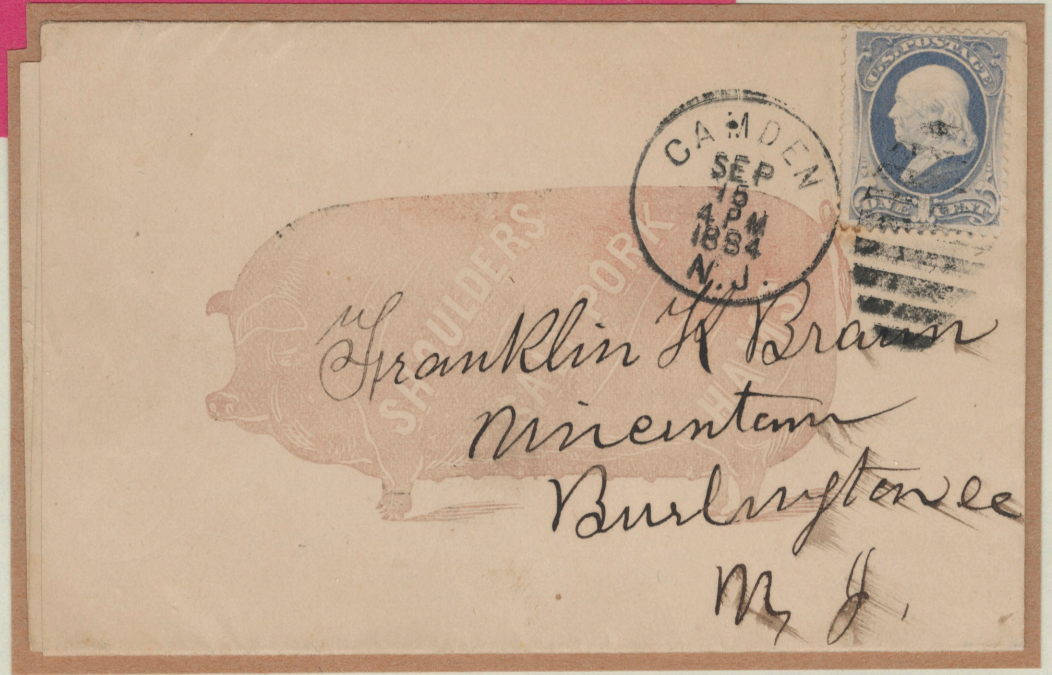 U.S. POSTAGE
ONE 1 CENT
CAMDEN
SEP
15
4 PM
1884
N.J.
SHOULDERS
PORK
HAMS
Franklin K Braun
Vincentown
Burlington Co
N, J.